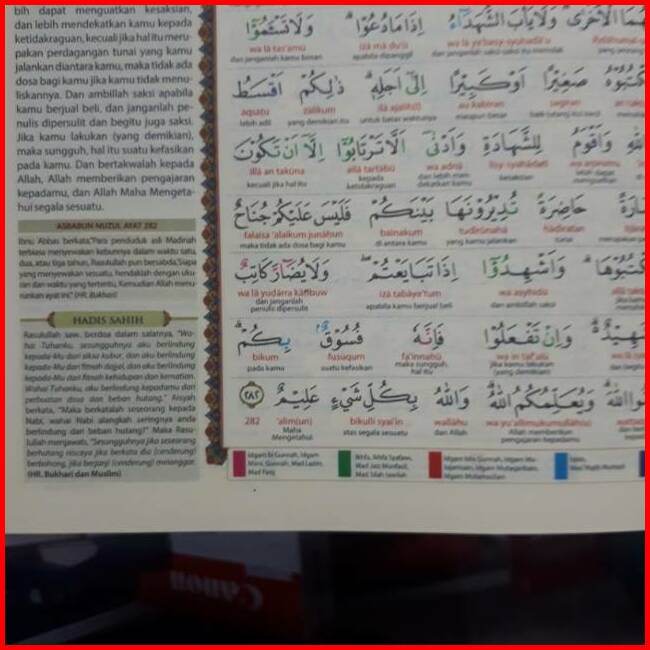 bih dapat menguatkan kesaksian,
dan lebih mendekatkan kamu kepada
ketidakraguan, kecuali jika hal itu meru-
pakan perdagangan tunai yang kamu
jalankan diantara kamu, maka tidak ada
dosa bagi kamu jika kamu tidak menu-
liskannya. Dan ambillah saksi apabila
kamu berjual beli, dan janganlah pe-
nulis dipersulit dan begitu juga saksi.
Jika kamu lakukan (yang demikian),
maka sungguh, hal itu suatu kefasikan
pada kamu. Dan bertakwalah kepada
Allah, Allah memberikan pengajaran
kepadamu, dan Allah Maha Mengeta-
hui segala sesuatu.
ASBABUN NUZUL AYAT 282
Ibnu Abbas berkata,"Para penduduk asli Madinah
terbiasa menyewakan kebunnya dalam waktu satu,
dua, atau tiga tahun, Rasulullah pun bersabda,'Siapa
yang menyewakan sesuatu, hendaklah dengan uku-
ran dan waktu yang tertentu, Kemudian Allah menu-
runkan ayat ini." (HR. Bukhari)
HADIS SAHIH
Rasulullah saw. berdoa dalam salatnya, "Wa-
hai Tuhanku, sesungguhnya aku berlindung
kepada-Mu dari siksa kubur, dan aku berlindung
kepada-Mu dari fitnah dajjal, dan aku berlindung
kepada-Mu dari fitnah kehidupan dan kematian.
Wahai Tuhanku, aku berlindung kepadamu dari
perbuatan dosa dan beban hutang." Aisyah
berkata, "Maka berkatalah seseorang kepada
Nabi, wahai Nabi alangkah seringnya anda
berlindung dari beban hutang?" Maka Rasu-
lullah menjawab, "Sesungguhnya jika seseorang
berhutang niscaya jika berkata dia (cenderung)
berbohong, jika berjanji (cenderung) melanggar.
(HR. Bukhari dan Muslim)
الْأُخْرَىٰ ۗ وَلَا يَأْبَ الشُّهَدَاءُ إِذَا مَا دُعُوْا ۗ وَلَا تَسْـَٔمُوْٓا
wa lā ya'basy-syuhadā'u iżā mā du'ū wa lā tas'amū
dan janganlah saksi-saksi itu menolak apabila dipanggil dan janganlah kamu bosan
صَغِيْرًا اَوْ كَبِيْرًا اِلٰٓى اَجَلِهٖ ۗ ذٰلِكُمْ اَقْسَطُ
ṣagīran au kabīran ilā ajalih(ī) żālikum aqsaṭu
maupun besar untuk batas waktunya yang demikian itu lebih adil
وَاَقْوَمُ لِلشَّهَادَةِ وَاَدْنٰىٓ اَلَّا تَرْتَابُوْٓا اِلَّآ اَنْ تَكُوْنَ
wa aqwamu lisy-syahādati wa adnā allā tartābū illā an takūna
kesaksian dan lebih mendekatkan kamu kepada ketidakraguan kecuali jika hal itu
حَاضِرَةً تُدِيْرُوْنَهَا بَيْنَكُمْ فَلَيْسَ عَلَيْكُمْ جُنَاحٌ
ḥāḍiratan tudīrūnahā bainakum falaisa 'alaikum junāḥun
tunai yang kamu jalankan di antara kamu maka tidak ada dosa bagi kamu
وَاَشْهِدُوْٓا اِذَا تَبَايَعْتُمْ ۖ وَلَا يُضَاۤرَّ كَاتِبٌ
wa asyhidū iżā tabāya'tum wa lā yuḍārra kātibuw
dan ambillah saksi apabila kamu berjual beli dan janganlah penulis dipersulit
وَاِنْ تَفْعَلُوْا فَاِنَّهٗ فُسُوْقٌۢ بِكُمْ ۗ
wa in taf'alū fa'innahū fusūqum bikum
jika kamu lakukan (yang demikian) maka sungguh, hal itu suatu kefasikan pada kamu
وَيُعَلِّمُكُمُ اللّٰهُ ۗ وَاللّٰهُ بِكُلِّ شَيْءٍ عَلِيْمٌ ٢٨٢
wa yu'allimukumullāh(u) wallāhu bikulli syai'in 'alīm(un) 282
Allah memberikan pengajaran kepadamu dan Allah atas segala sesuatu Maha Mengetahui
Canon